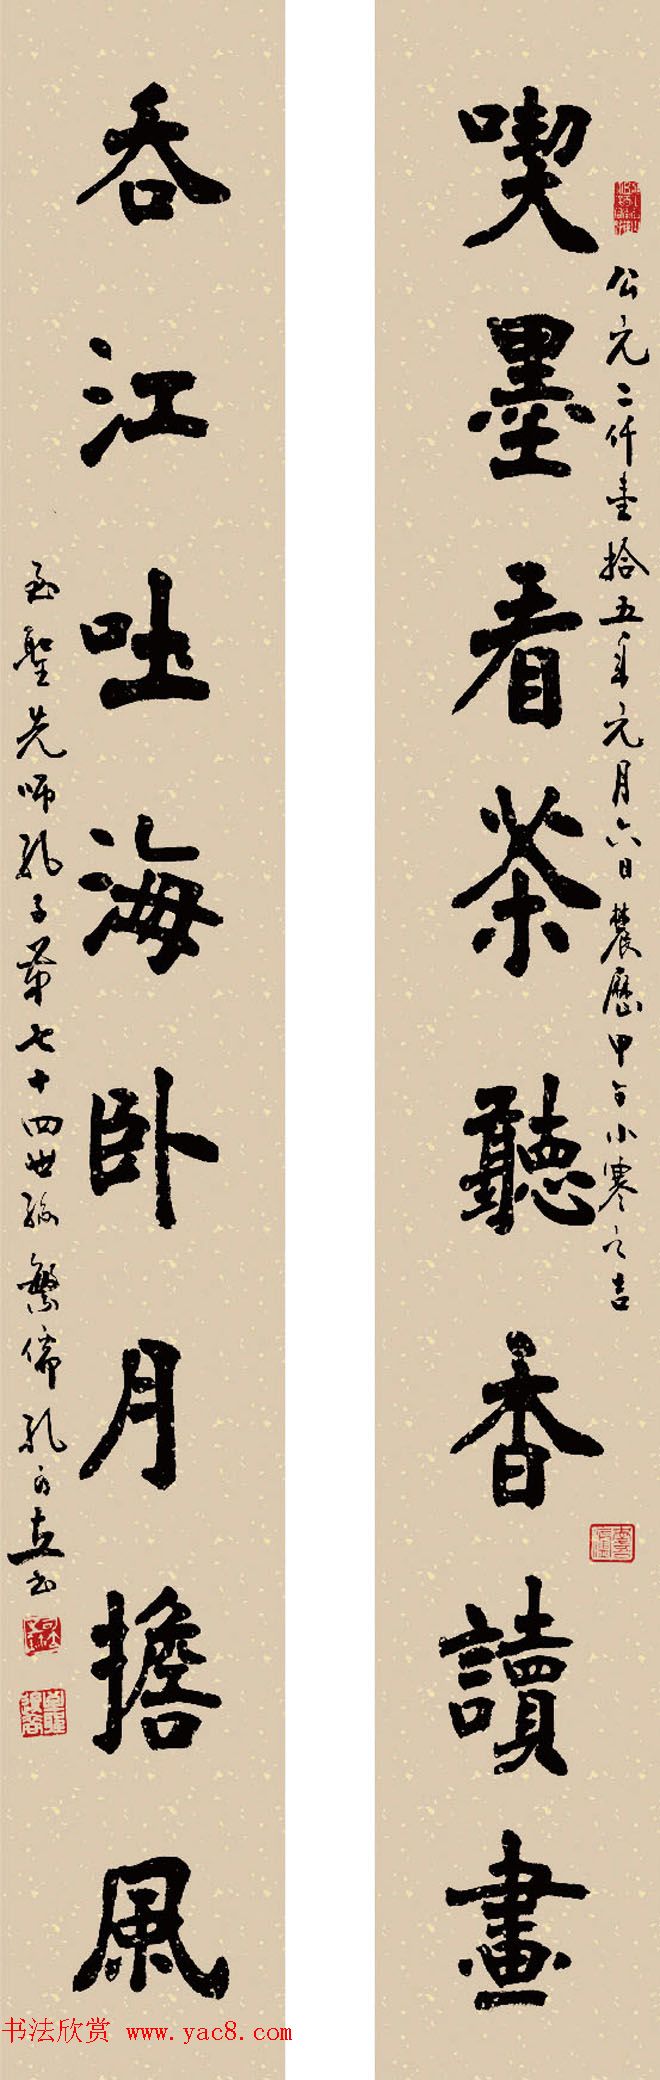 喫墨看茶聽香讀畫
公元二仟壹拾五年元月六日農歷甲午小寒之吉
吞江吐海卧月擔風
至聖先師孔子第七十四世孫繁儒孔可立書
书法欣赏 www.yac8.com